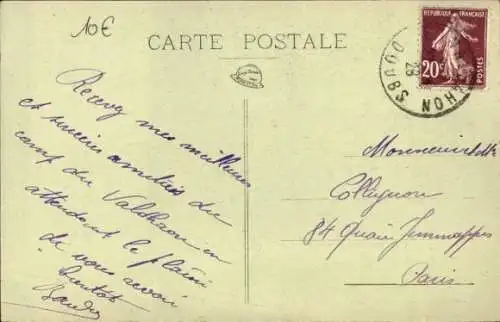 10€
CARTE POSTALE
REPUBLIQUE FRANÇAISE
20c
POSTES
HON
DOUBS
28
Recevez mes meilleurs
et sincères amitiés du
camp du Valdahon en
attendant le plaisir
de vous revoir
bientôt
Monsieur et Me
Collignon
84 Quai Jemmappes
Paris